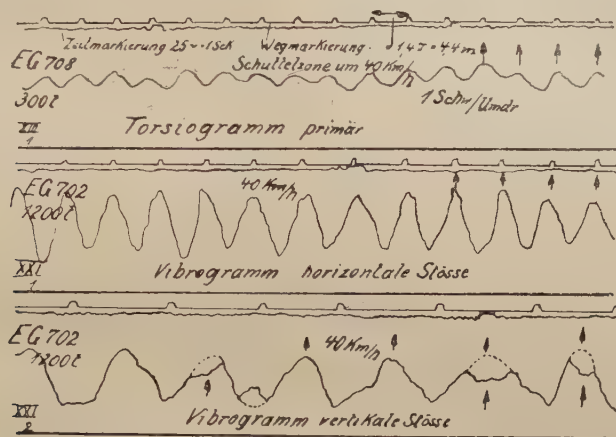 Zeitmarkierung 25 ~ 1 Sek Wegmarkierung 1,4T = 4,4 m
EG 708 Schüttelzone um 40 Km/h
300t 1 Schw/Umdr
XVI
1 Torsiogramm primär
EG 702 40 Km/h
1200t
XXI
1 Vibrogramm horizontale Stösse
EG 702 40 Km/h
1200t
XXI
2 Vibrogramm vertikale Stösse